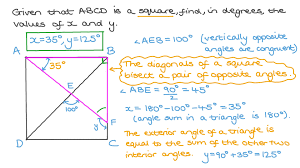 Given that ABCD is a square, find, in degrees, the
values of x and y.
x=35°, y=125°
∠AEB=100° (vertically opposite
angles are congruent)
The diagonals of a square
bisect a pair of opposite angles.
∠ABE = 90°/2 = 45°
x=180°-100°-45°=35°
(angle sum in a triangle is 180°).
The exterior angle of a triangle is
equal to the sum of the other two
interior angles. y=90°+35°=125°
A
B
35°
E
100°
y
F
D
C